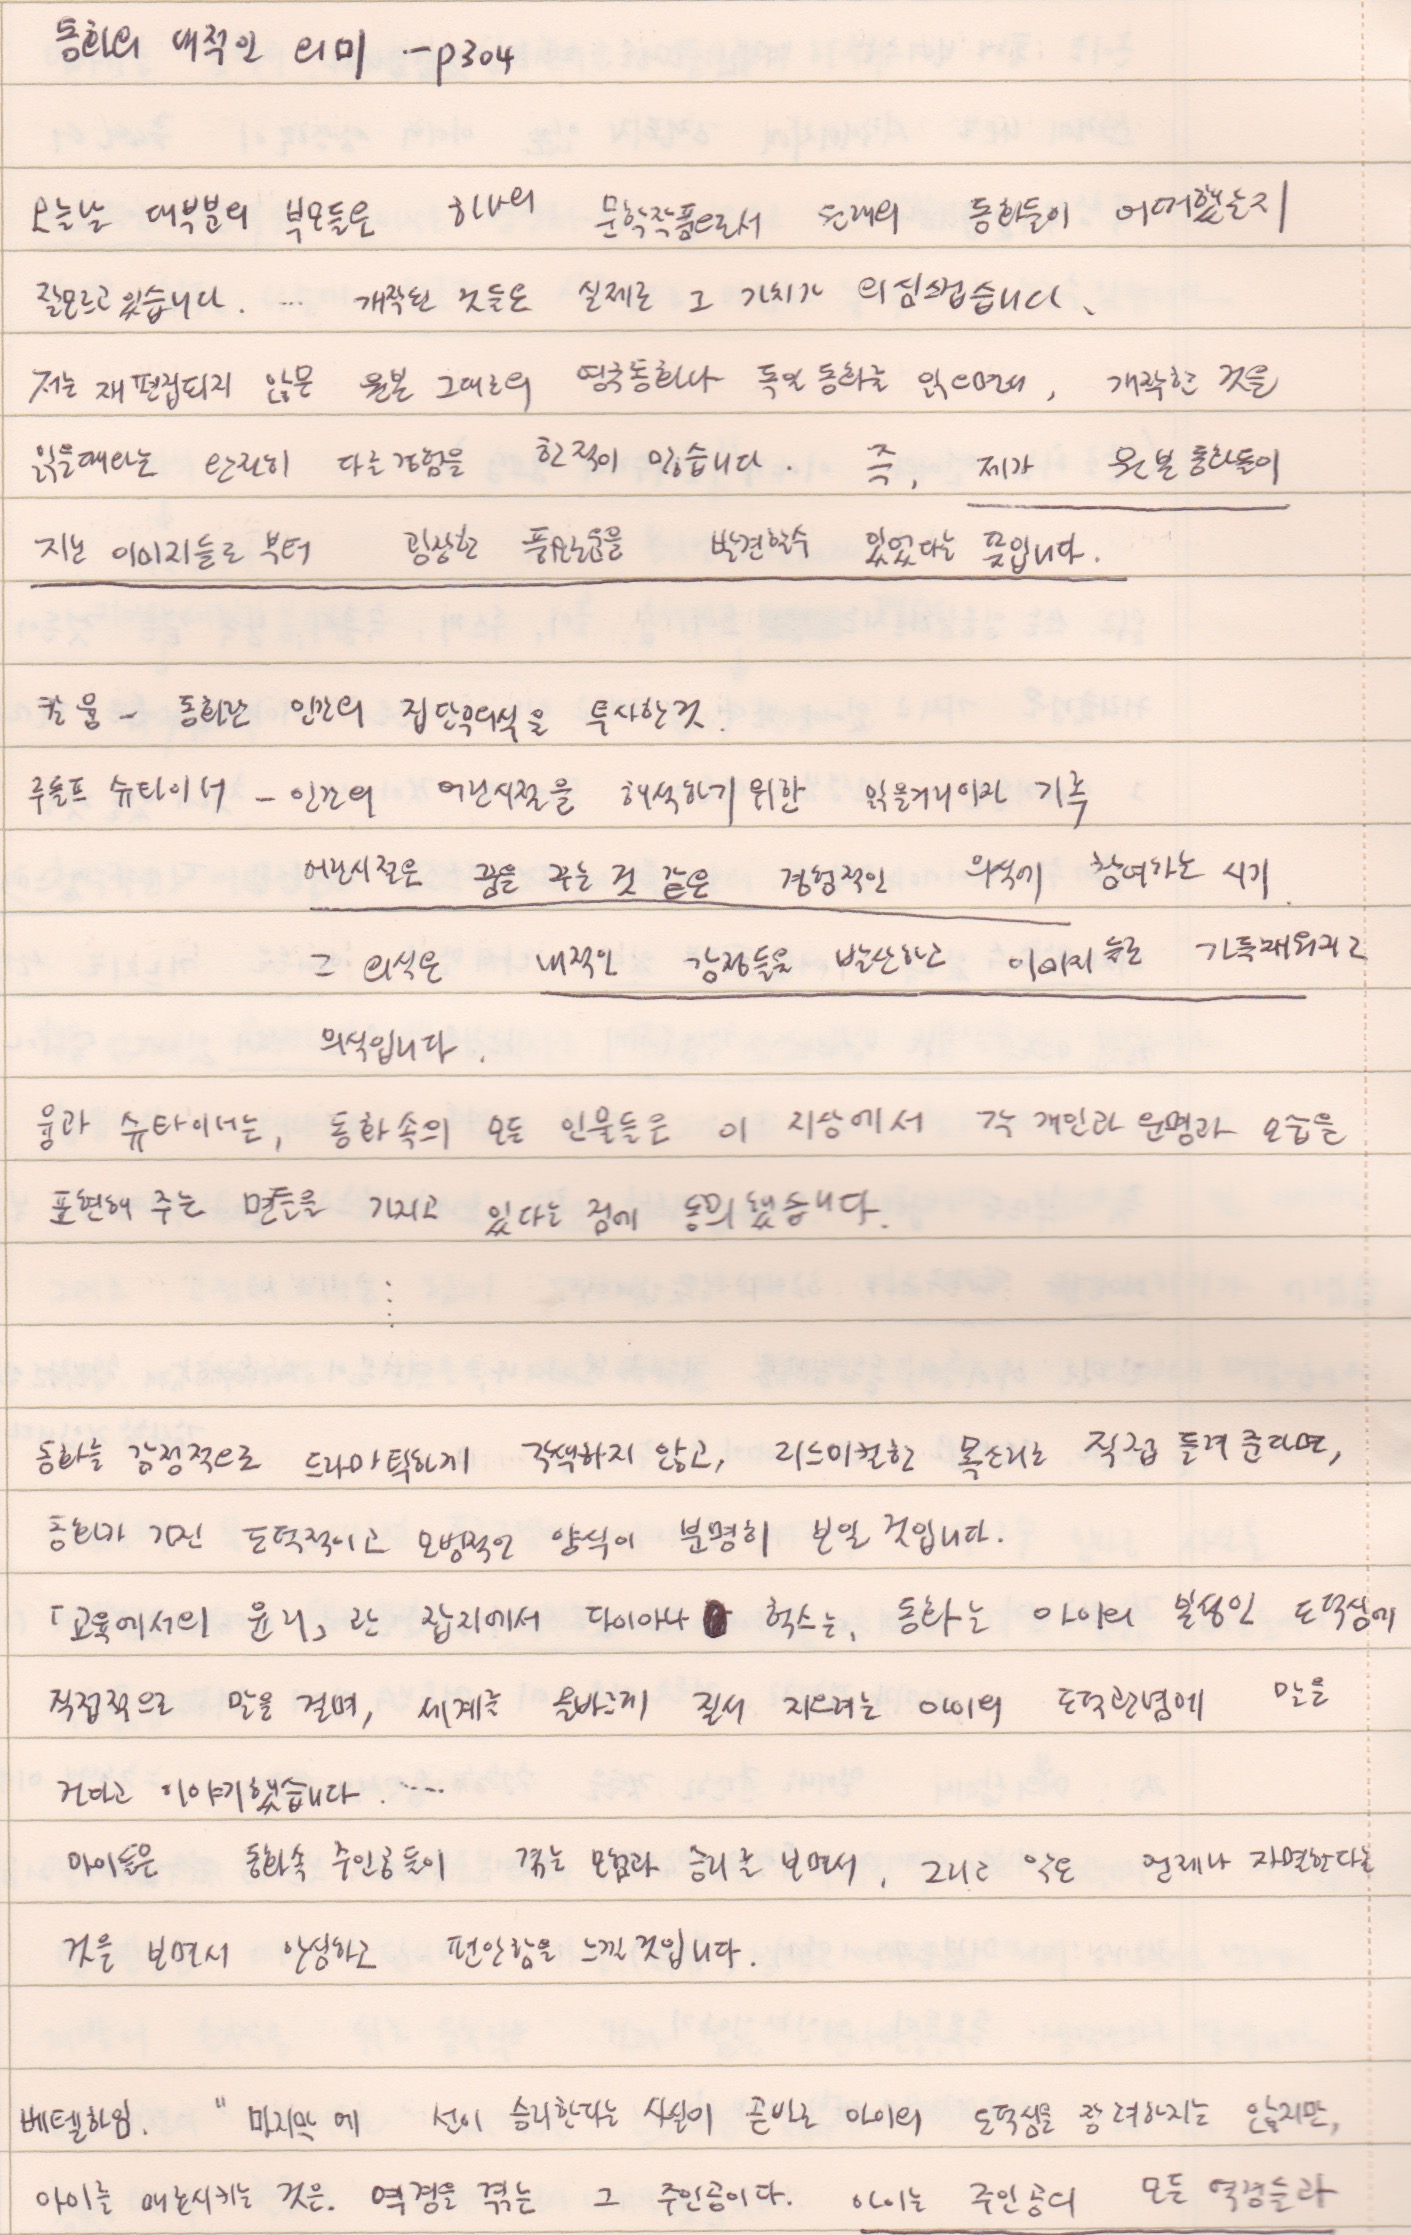 동화의 내적인 의미 --p304
오늘날 대부분의 부모들은 하나의 문학작품으로서 본래의 동화들이 어떠했는지
잘모르고 있습니다. ... 개작된 것들은 실제로 그 가치가 의심스럽습니다.
저는 재편집되지 않은 원본 그대로의 영국동화나 독일 동화를 읽으면서, 개작한 것을
읽을때와는 완전히 다른경험을 한적이 있습니다. 즉, 제가 원본동화들이
지닌 이미지들로부터 굉장한 풍요로움을 발견할수 있었다는 뜻입니다.
칼 융 - 동화란 인간의 집단무의식을 투사한것.
루돌프 슈타이너 - 인간의 어린시절을 해석하기 위한 읽을거리이라 기록
어린시절은 꿈을 꾸는 것 같은 경험적인 의식에 참여하는 시기.
그 의식은 내적인 감정들을 발산하고 이미지들로 가득채워지고
의식입니다.
융과 슈타이너는, 동화속의 모든 인물들은 이 지상에서 각 개인과 운명과 모습을
표현해 주는 면들을 가지고 있다는 점에 동의했습니다.
⋮
동화를 감정적으로 드라마틱하게 각색하지 않고, 리드미컬한 목소리로 직접 들려준다면,
동화가 가진 도덕적이고 모범적인 양식이 분명히 보일 것입니다.
「교육에서의 윤리」란 잡지에서 다이아나 헉스는, 동화는 아이의 본성인 도덕성에
직접적으로 말을 걸며, 세계를 올바르게 질서 지으려는 아이의 도덕관념에 말을
건다고 이야기했습니다. ....
아이들은 동화속 주인공들이 겪는 모험과 승리를 보면서, 그리고 악은 언제나 자멸한다는
것을 보면서 안심하고 편안함을 느낄것입니다.
베텔하임. " 마지막에 선이 승리한다는 사실이 곧바로 아이의 도덕심을 장려하지는 않지만,
아이를 매혹시키는 것은. 역경을 겪는 그 주인공이다. 아이는 주인공의 모든 역경들과